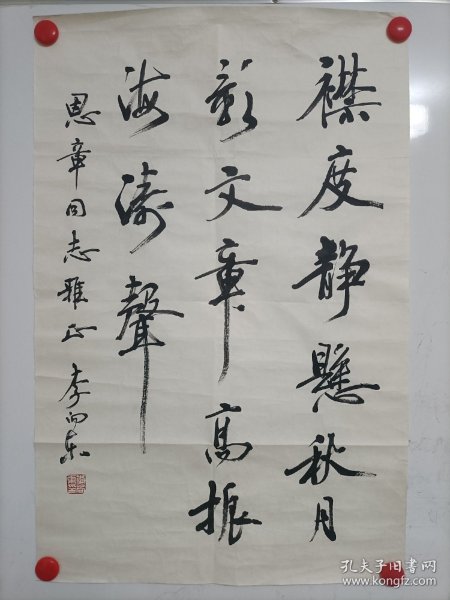 襟度静懸秋月
彩文章高振
海涛聲
恩章同志雅正 李向东
孔夫子旧书网
www.kongfz.com